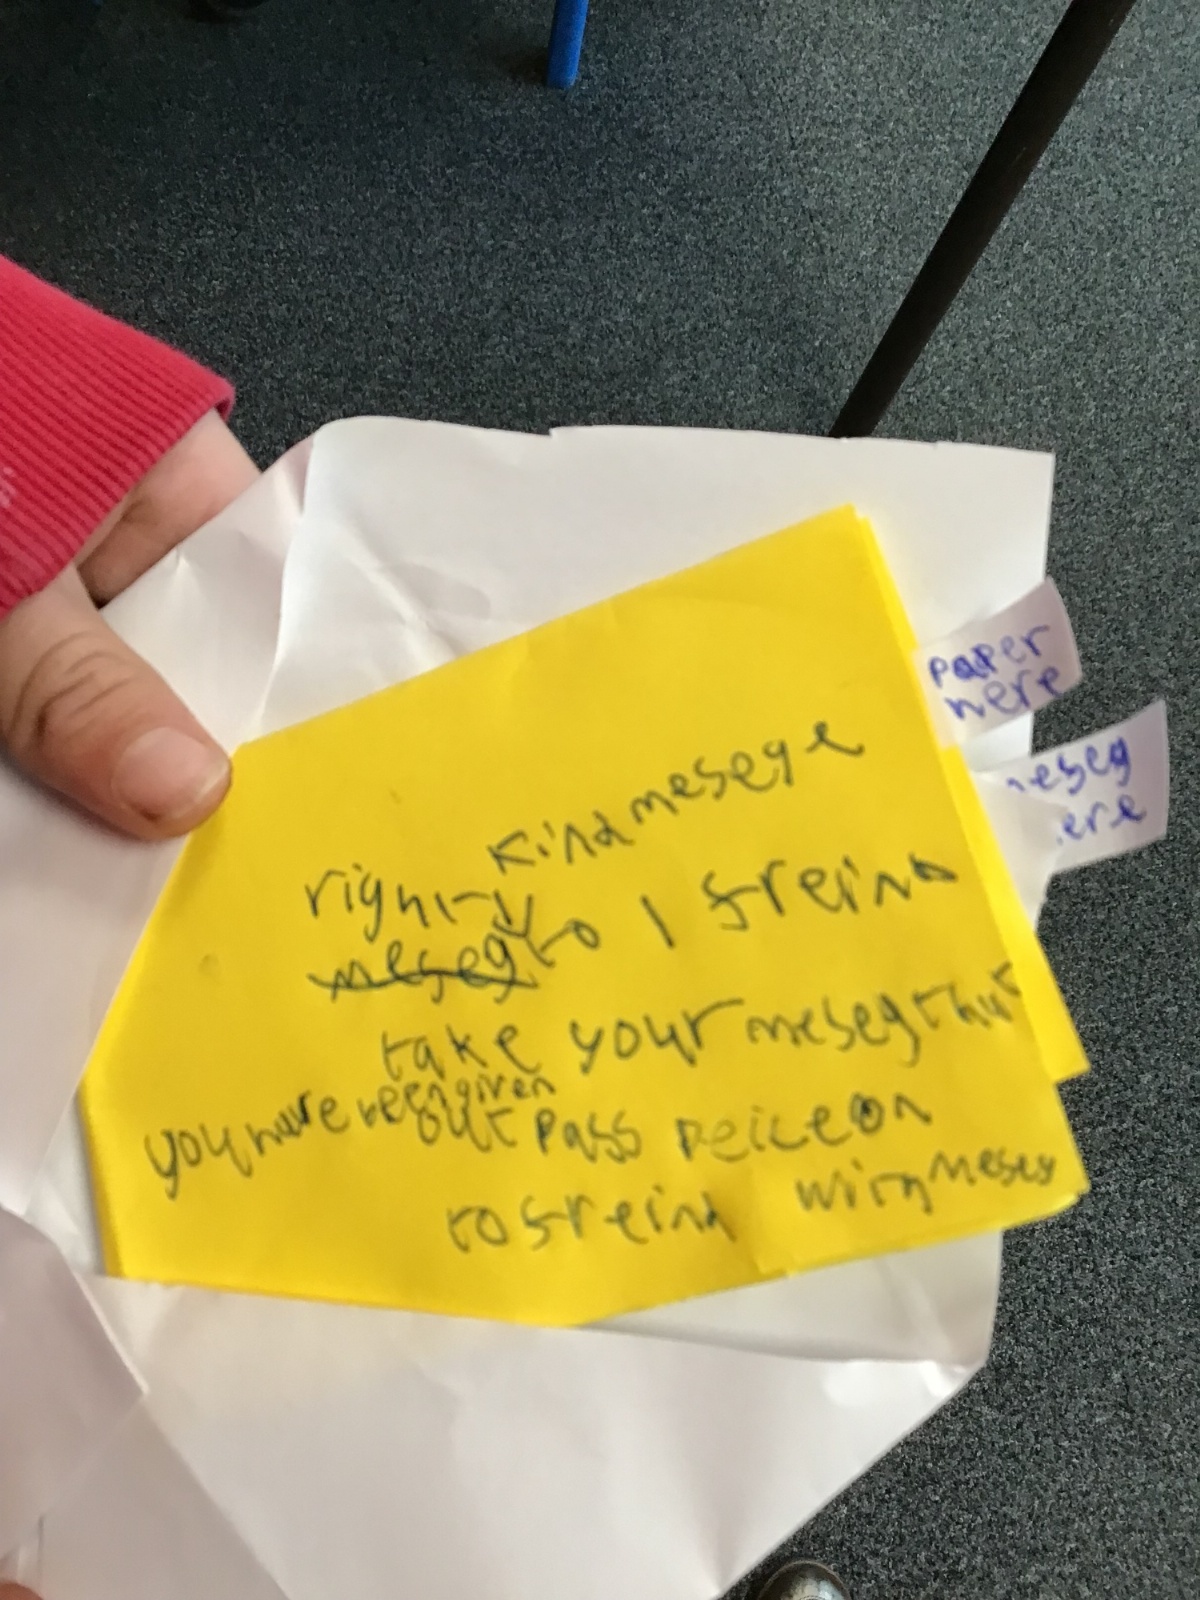 right kind mesege
meseg to 1 freind
take your meseg that
you have been given
out pass peice on
to freind with meseg
paper
here
meseg
ere